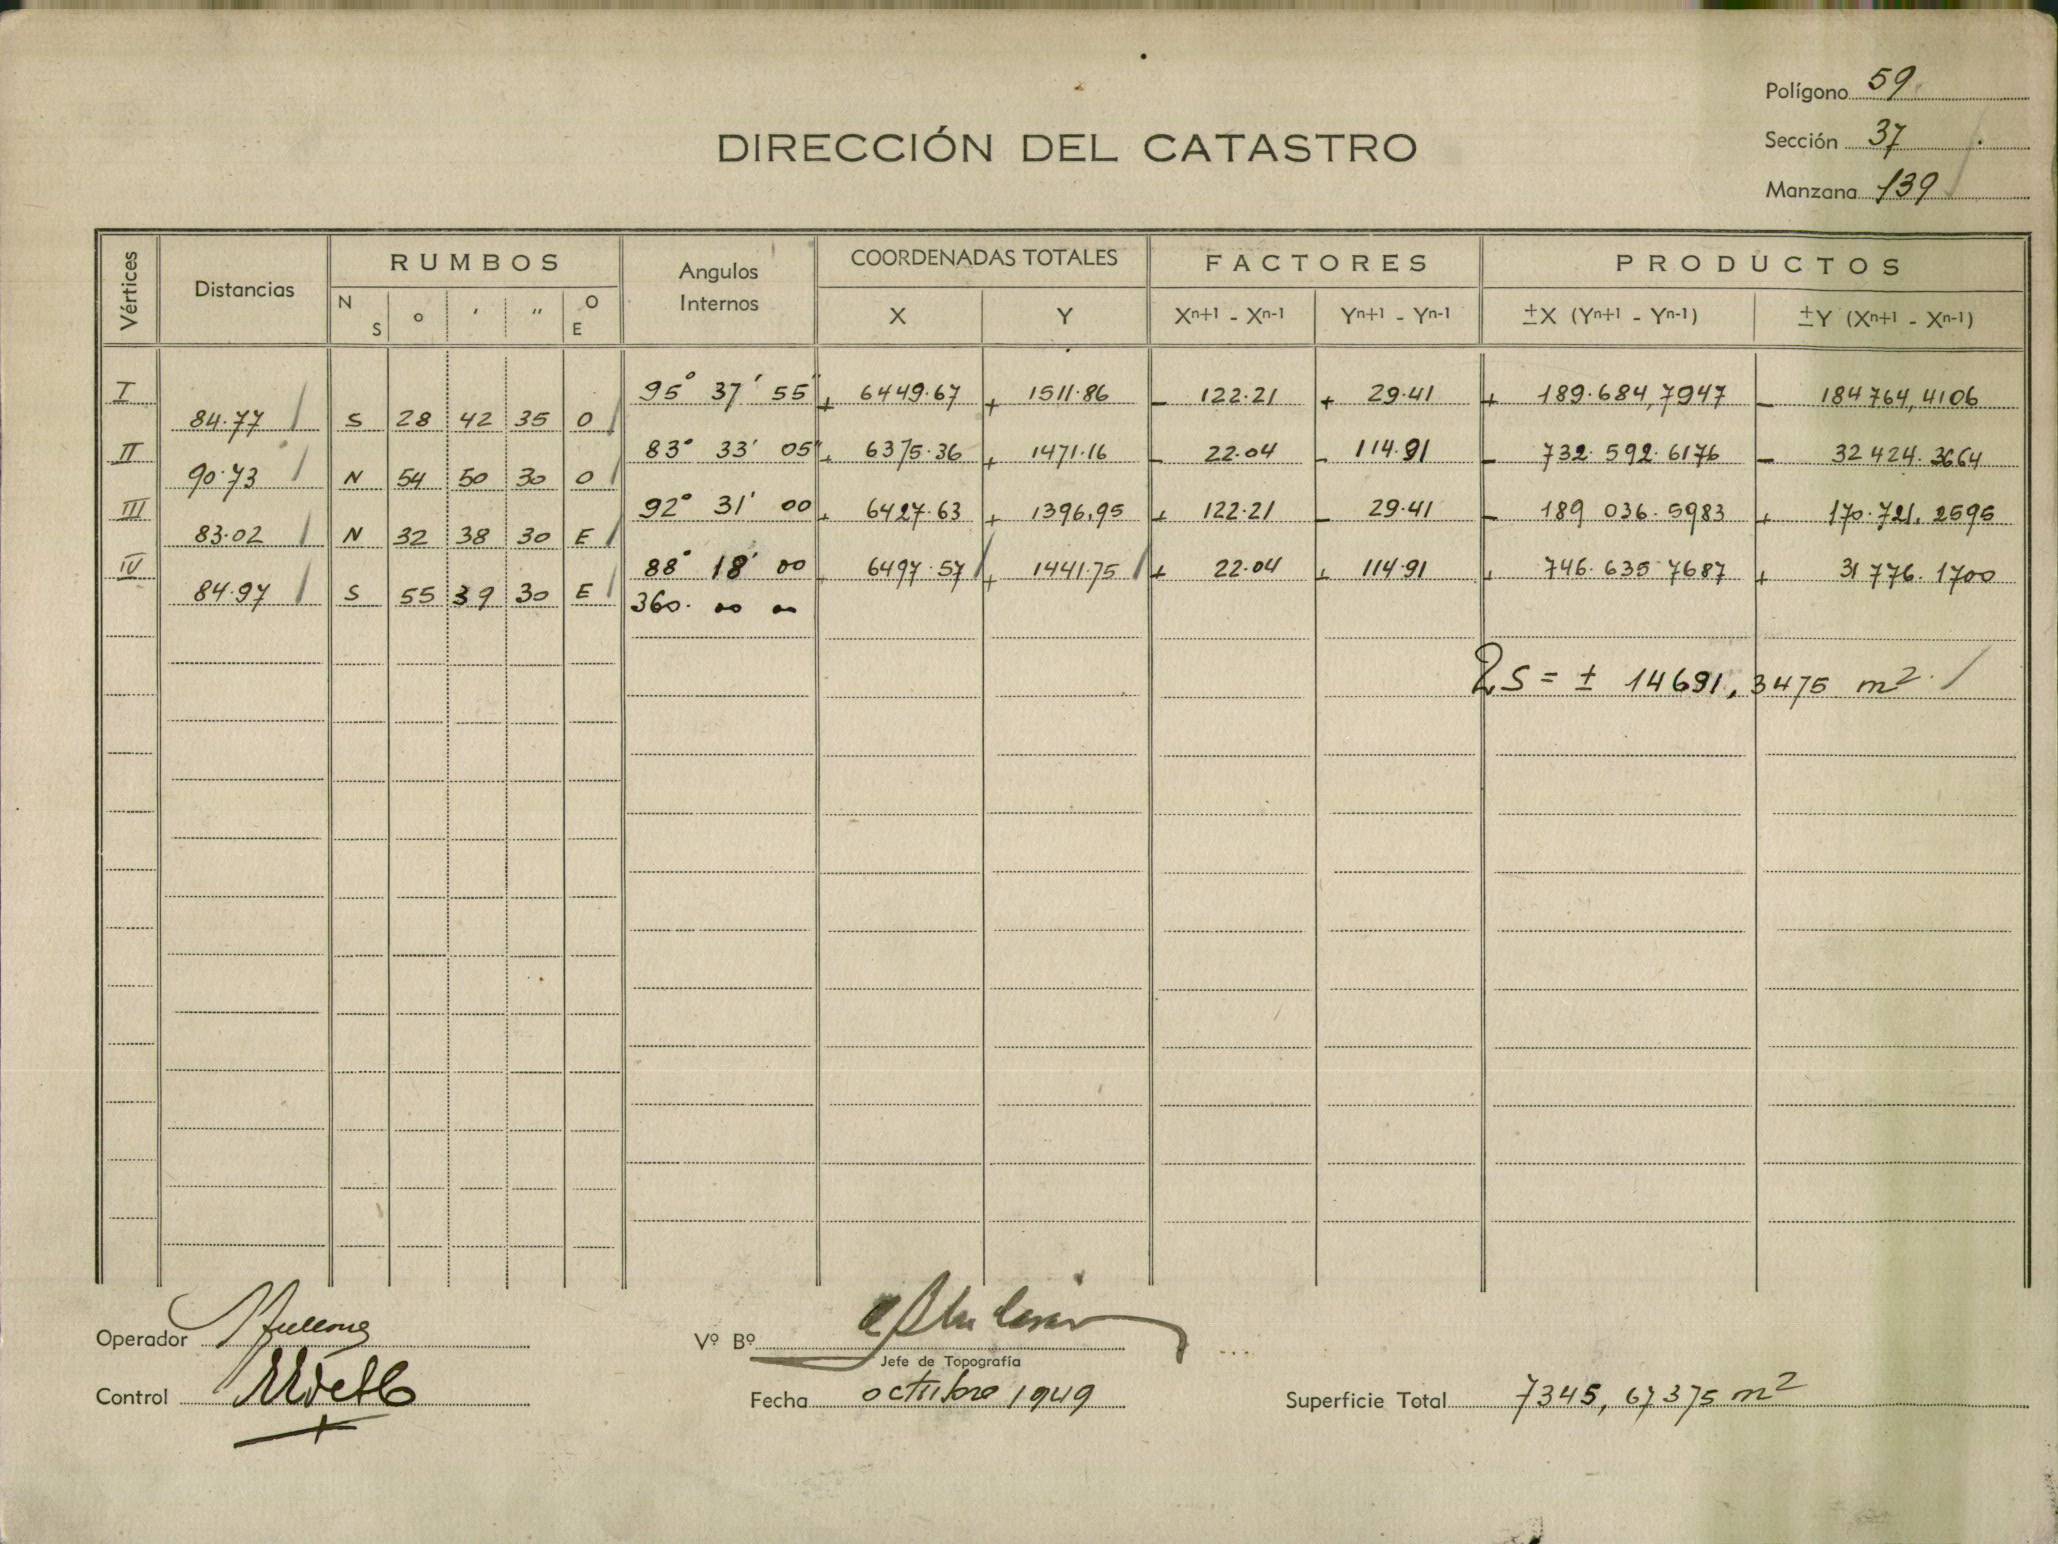 Polígono 59
Sección 37
Manzana 139
DIRECCIÓN DEL CATASTRO
Vértices Distancias RUMBOS Angulos Internos COORDENADAS TOTALES FACTORES PRODUCTOS
N S o ' " O E X Y Xn+1 - Xn-1 Yn+1 - Yn-1 ±X (Yn+1 - Yn-1) ±Y (Xn+1 - Xn-1)
I 95° 37' 55" + 6449.67 + 1511.86 - 122.21 + 29.41 + 189.684,7947 - 184764,4106
84.77 S 28 42 35 O
II 83° 33' 05" + 6375.36 + 1471.16 - 22.04 - 114.91 - 732.592.6176 - 32424.3664
90.73 N 54 50 30 O
III 92° 31' 00 + 6427.63 + 1396.95 + 122.21 - 29.41 - 189 036.5983 + 170.721.2595
83.02 N 32 38 30 E
IV 88° 18' 00 + 6497.57 + 1441.75 + 22.04 + 114.91 + 746.635 7687 + 31776.1700
84.97 S 55 39 30 E 360. 00 00
2S = ± 14691,3475 m2
Operador
Vº Bº
Jefe de Topografía
Control
Fecha octubre 1949
Superficie Total 7345,67375 m2